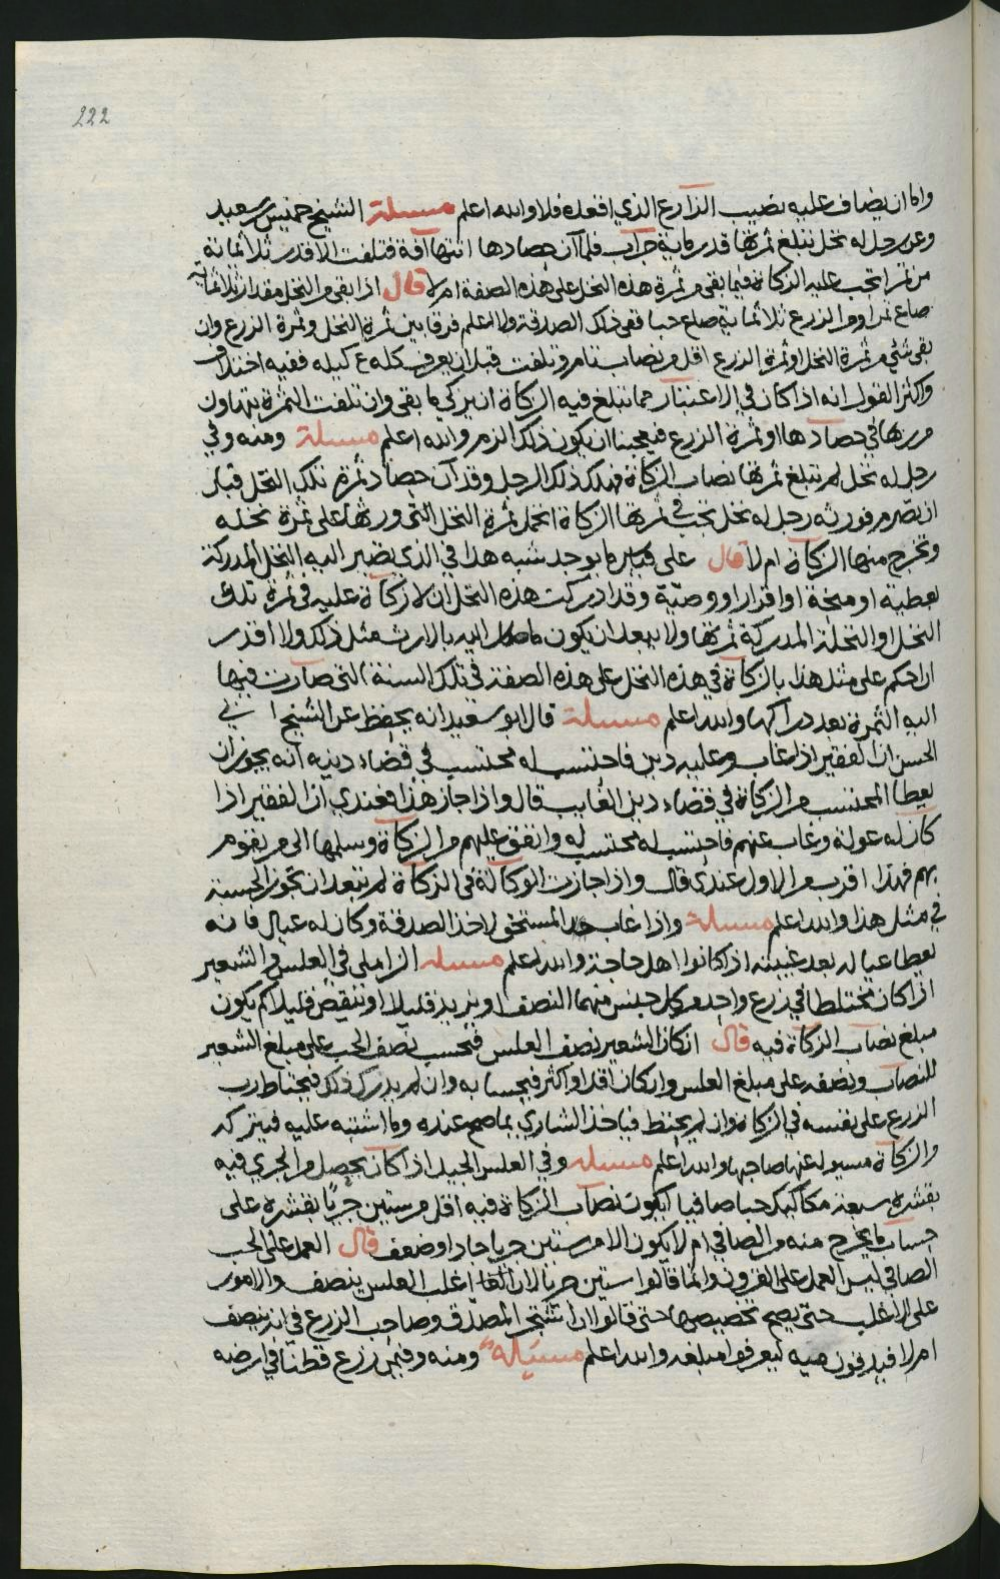 222
واما ان يضاف عليه نصيب الزارع الذي اقعده فلا والله اعلم مسئلة الشيخ خميس بن سعيد
وعن رجل له نخل تبلغ ثمرتها قدر ماية جراب فلما آن حصادها اتتها آفة فتلفت الا قدر ثلاثماية
من تمر اتجب عليه الزكاة فيما بقي من ثمرة هذه النخل على هذه الصفة ام لا قال اذا بقي من النخل مقدار ثلاثماية
صاع تمرا ومن الزرع ثلاثماية صاع حبا ففي ذلك الصدقة ولا اعلم فرقا بين ثمرة النخل وثمرة الزرع وان
بقي شيء من ثمرة النخل او ثمرة الزرع اقل من نصاب تام وتلفت قبل ان يعرف كله كيله ففيه اختلاف
واكثر القول انه اذا كان في الاعتبار مما تبلغ فيه الزكاة ان يزكي ما بقي وان تلفت الثمرة بتهاون
من ربها في حصادها او ثمرة الزرع فيعجبنا ان يكون ذلك الزم والله اعلم مسئلة ومنه وفي
رجل له نخل لم تبلغ ثمرتها نصاب الزكاة فهلك ذلك الرجل وقد آن حصاد ثمرة تلك النخل قبل
ان تصرم فورثه رجل له نخل تجب في ثمرتها الزكاة اتحمل ثمرة النخل التي ورثها على ثمرة نخله
وتخرج منها الزكاة ام لا قال على قياس ما يوجد شبه هذا في الذي يصير اليه النخل المدركة
بعطية او منحة او اقرار او وصية وقد ادركت هذه النخل ان لا زكاة عليه في ثمرة تلك
النخل او النخلة المدركة ثمرتها ولا يبعد ان يكون ما صار اليه بالارث مثل ذلك ولا اقدر
ان احكم على مثل هذا بالزكاة في هذه النخل على هذه الصفة في تلك السنة التي صارت فيها
اليه الثمرة بعد دراكها والله اعلم مسئلة قال ابو سعيد انه يحفظ عن الشيخ ابي
الحسن ان الفقير اذا غاب وعليه دين فاحتسب له محتسب في قضاء دينه انه يجوز ان
يعطا المحتسب من الزكاة في قضاء دين الغايب قال واذا جاز هذا فعندي ان الفقير اذا
كان له عولة وغاب عنهم فاحتسب له محتسب له وانفق عليهم من الزكاة وسلمها الى من يقوم
بهم فهذا اقرب من الاول عندي قال واذا جازت الوكالة في الزكاة لم تبعد ان تجوز الحسبة
في مثل هذا والله اعلم مسئلة واذا غاب المستحق لاخذ الصدقة وكان له عيال فانه
يعطا عياله بعد غيبته اذا كانوا اهل حاجة والله اعلم مسئله الزاملي في العلس والشعير
اذا كان مختلطا في زرع واحد من كل جنس منهما النصف او يزيد قليلا او ينقص قليلا كم يكون
مبلغ نصاب الزكاة فيه قال ان كان الشعير نصف العلس فيحسب نصف الحب على مبلغ الشعير
للنصاب ونصفه على مبلغ العلس وان كان اقل او اكثر فبحسابه وان لم يدرك ذلك فيحتاط رب
الزرع على نفسه في الزكاة وان لم يحتط فياخذ الشاري بما صح عنده وما اشتبه عليه فيتركه
والزكاة مسيول عنها صاحبها والله اعلم مسئله وفي العلس الجيد اذا كان يحصل من الجري فيه
بقشره سبعة مكاكيك حبا صافيا ايكون نصاب الزكاة فيه اقل من ستين جريا بقشره على
حساب ما يخرج منه من الصافي ام لا يكون الا من ستين جريا جاد او ضعف قال العمل على الحب
الصافي ليس العمل على القرون وانما قالوا ستين جريا لان اغلب العلس ينصف والامور
على الاغلب حتى يصح تخصيصها حتى قالوا ان تشتجر المصدق وصاحب الزرع في انه ينصف
ام لا فيدقون منه ليعرفوا مبلغه والله اعلم مسئلة ومنه وفيمن زرع قطنا في ارضه